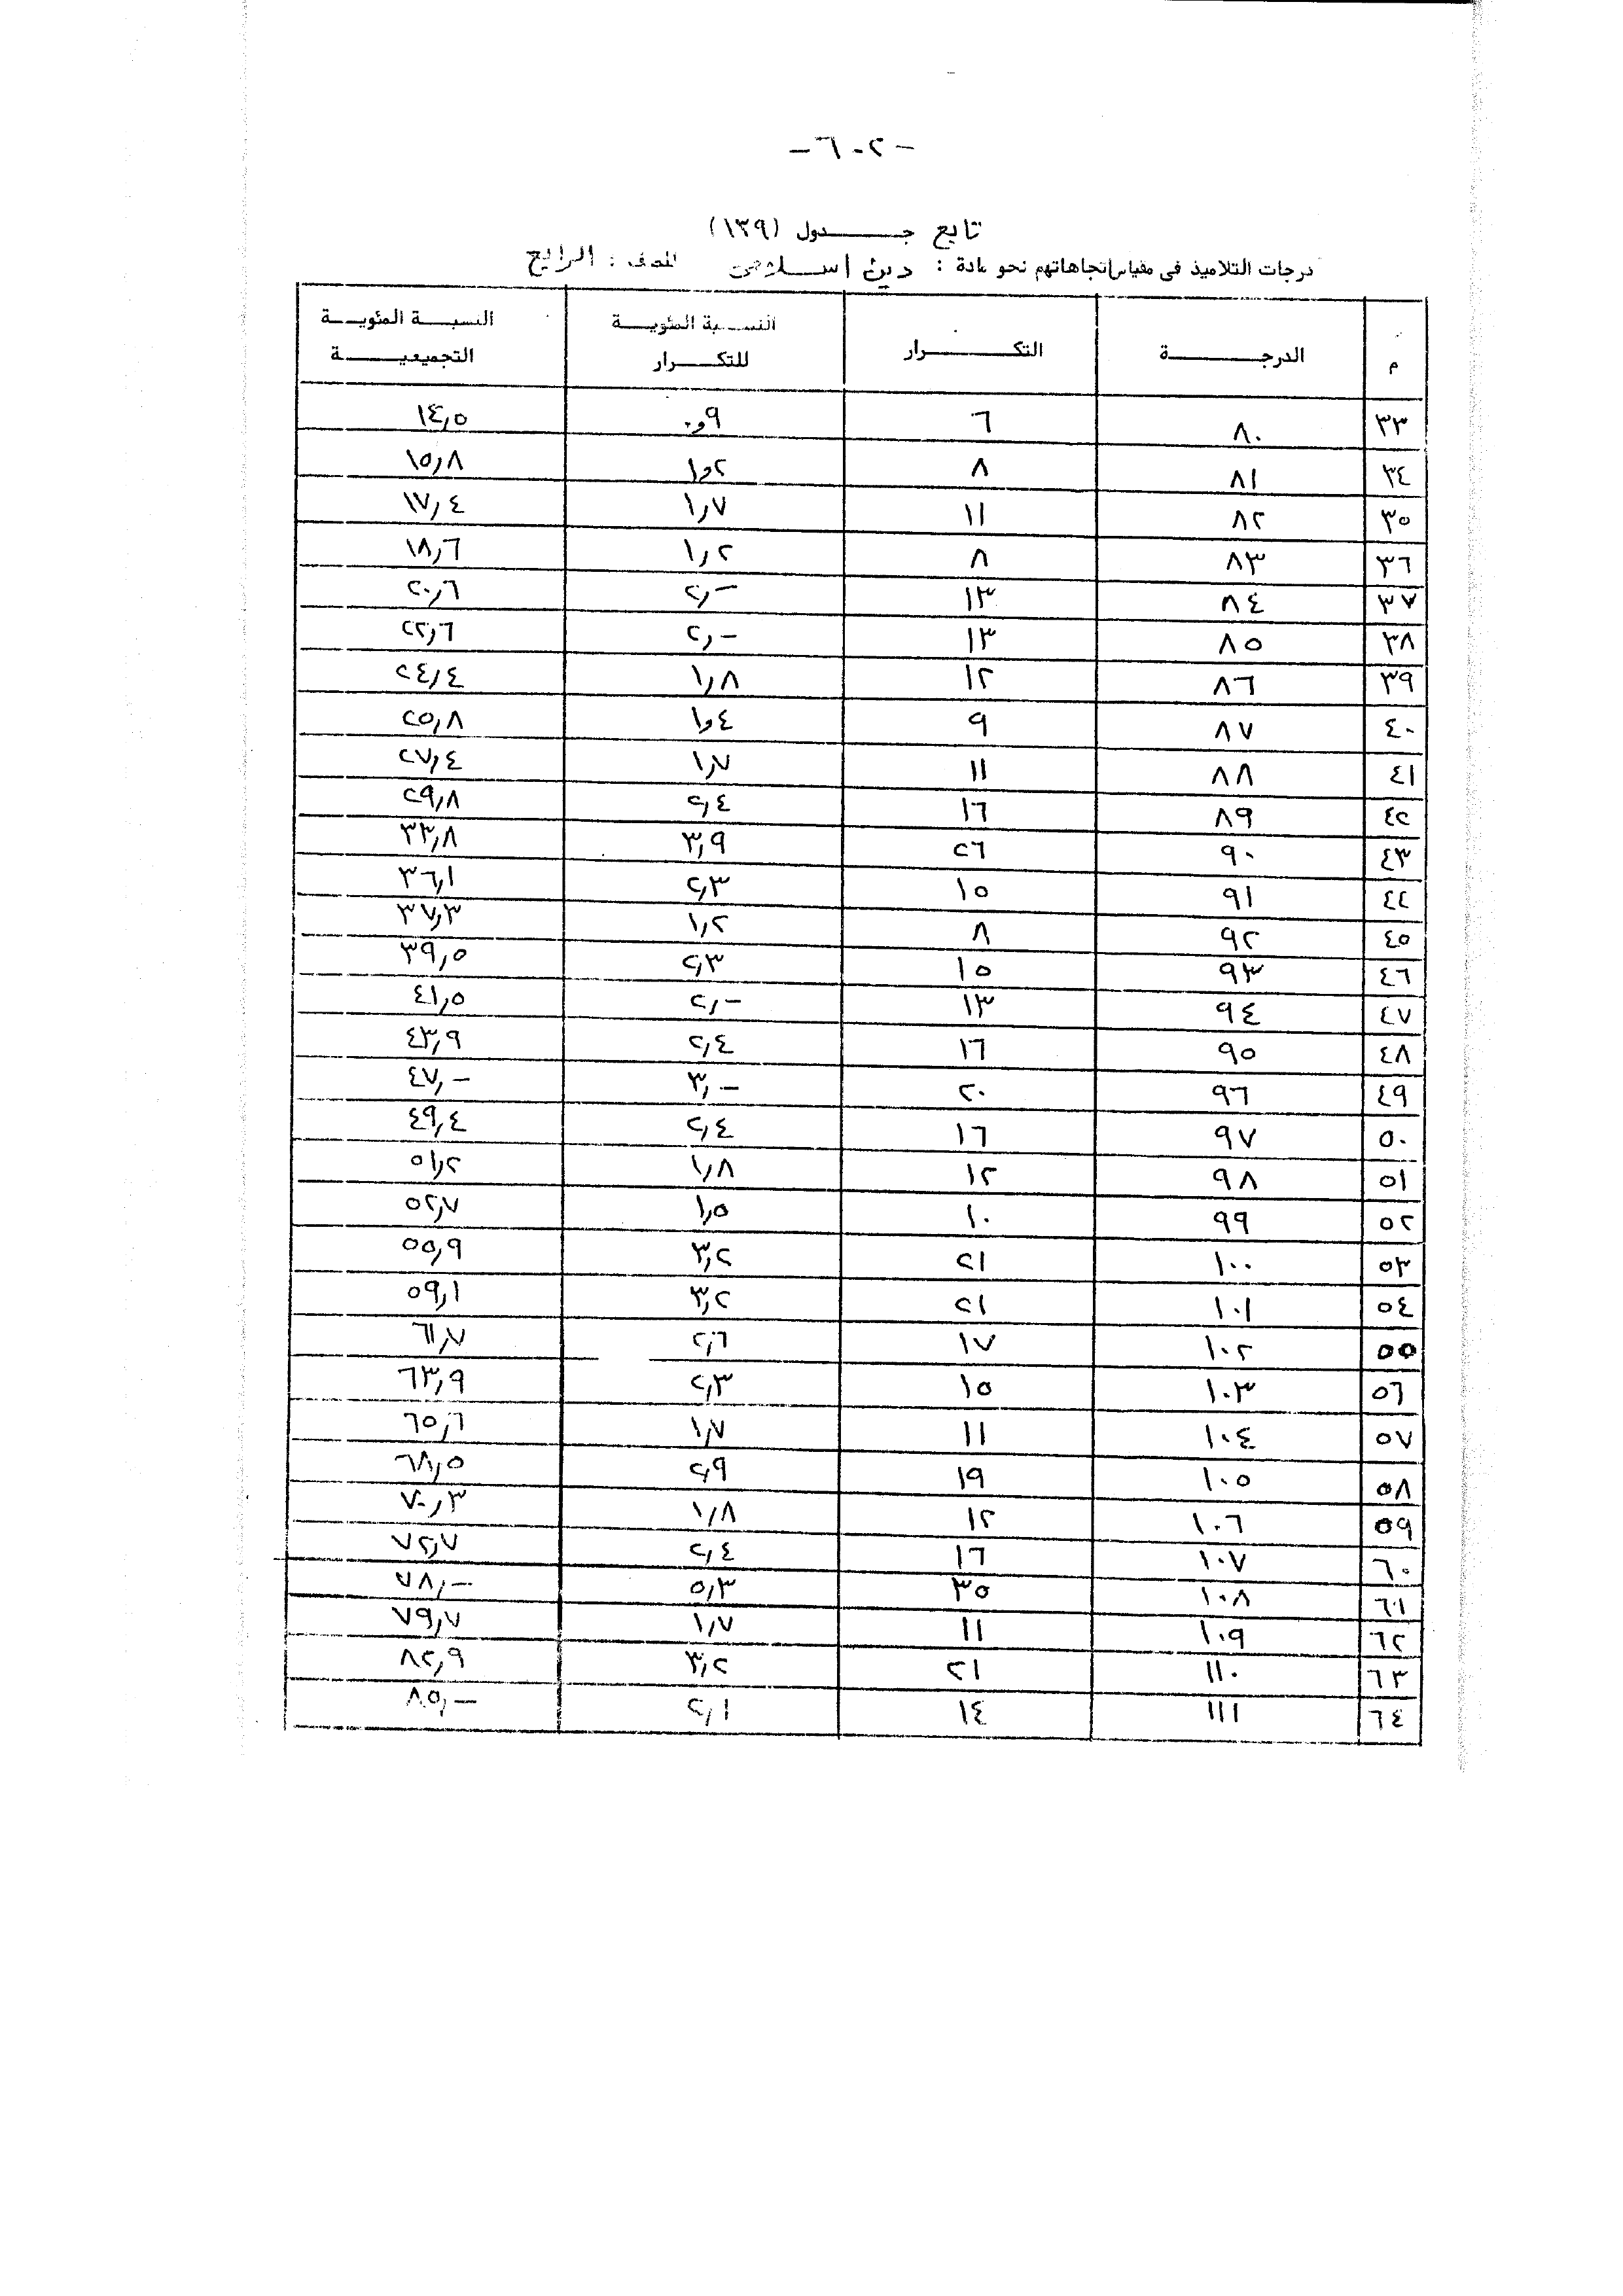 -٦٠٢-
تابع جدول (١٣٩)
درجات التلاميذ فى مقياس اتجاهاتهم نحو مادة : دين اسلامى الصف : الرابع
م الدرجة التكرار النسبة المئوية للتكرار النسبة المئوية التجميعية
٣٣ ٨٠ ٦ ٠و٩ ١٤,٥
٣٤ ٨١ ٨ ١و٢ ١٥,٨
٣٥ ٨٢ ١١ ١,٧ ١٧,٤
٣٦ ٨٣ ٨ ١,٢ ١٨,٦
٣٧ ٨٤ ١٣ ٢,- ٢٠,٦
٣٨ ٨٥ ١٣ ٢,- ٢٢,٦
٣٩ ٨٦ ١٢ ١,٨ ٢٤,٤
٤٠ ٨٧ ٩ ١و٤ ٢٥,٨
٤١ ٨٨ ١١ ١,٧ ٢٧,٤
٤٢ ٨٩ ١٦ ٢,٤ ٢٩,٨
٤٣ ٩٠ ٢٦ ٣,٩ ٣٣,٨
٤٤ ٩١ ١٥ ٢,٣ ٣٦,١
٤٥ ٩٢ ٨ ١,٢ ٣٧,٣
٤٦ ٩٣ ١٥ ٢,٣ ٣٩,٥
٤٧ ٩٤ ١٣ ٢,- ٤١,٥
٤٨ ٩٥ ١٦ ٢,٤ ٤٣,٩
٤٩ ٩٦ ٢٠ ٣,- ٤٧,-
٥٠ ٩٧ ١٦ ٢,٤ ٤٩,٤
٥١ ٩٨ ١٢ ١,٨ ٥١,٢
٥٢ ٩٩ ١٠ ١,٥ ٥٢,٧
٥٣ ١٠٠ ٢١ ٣,٢ ٥٥,٩
٥٤ ١٠١ ٢١ ٣,٢ ٥٩,١
٥٥ ١٠٢ ١٧ ٢,٦ ٦١,٧
٥٦ ١٠٣ ١٥ ٢,٣ ٦٣,٩
٥٧ ١٠٤ ١١ ١,٧ ٦٥,٦
٥٨ ١٠٥ ١٩ ٢,٩ ٦٨,٥
٥٩ ١٠٦ ١٢ ١,٨ ٧٠,٣
٦٠ ١٠٧ ١٦ ٢,٤ ٧٢,٧
٦١ ١٠٨ ٣٥ ٥,٣ ٧٨,-
٦٢ ١٠٩ ١١ ١,٧ ٧٩,٧
٦٣ ١١٠ ٢١ ٣,٢ ٨٢,٩
٦٤ ١١١ ١٤ ٢,١ ٨٥,-